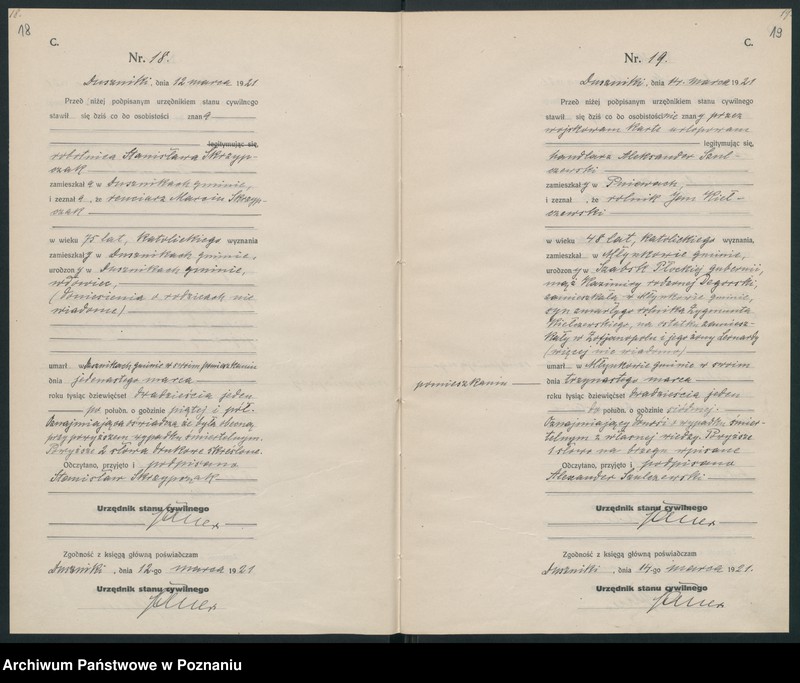 18
C.
Nr. 18.
Duszniki, dnia 12 marca 1921
Przed niżej podpisanym urzędnikiem stanu cywilnego
stawił się dziś co do osobistości znana
legitymując się,
robotnica Stanisława Skrzyp-
czak
zamieszkała w Dusznikach gminie,
i zeznała, że renciarz Marcin Skrzyp-
czak
w wieku 75 lat, katolickiego wyznania
zamieszkały w Dusznikach gminie,
urodzony w Dusznikach gminie,
wdowiec,
(doniesienia o rodzicach nie
wiadome)
umarł w Dusznikach gminie w swoim pomieszkaniu
dnia jedenastego marca
roku tysiąc dziewięćset dwadzieścia jeden
po połudn. o godzinie piątej i pół.
Oznajmiająca oświadcza, że była obecną
przy powyższem wypadku śmiertelnym.
Powyższe 2 słowa drukowe skreślono.
Odczytano, przyjęto i podpisano
Stanisław Skrzypczak
Urzędnik stanu cywilnego
Zgodność z księgą główną poświadczam
Duszniki, dnia 12-go marca 1921
Urzędnik stanu cywilnego
19
C.
Nr. 19.
Duszniki, dnia 14. marca 1921
Przed niżej podpisanym urzędnikiem stanu cywilnego
stawił się dziś co do osobistości nie znany przez
wojskowam karte urlopowam
legitymując się,
handlarz Aleksander Szul-
czewski
zamieszkały w Pniewach,
i zeznał, że rolnik Jan Kieł-
szewski
w wieku 48 lat, katolickiego wyznania,
zamieszkał w Młynkowie gminie,
urodzony w Płockiej Gubernii,
mąż Kazimiry rodzonej
zamieszkałą w Młynkowie gminie,
syn zmarłego rolnika Zygmunta
na ostatku zamiesz-
kały w i jego żony Leonardy
(więcej nie wiadomo)
umarł w Młynkowie gminie w swoim
pomieszkaniu
dnia trzynastego marca
roku tysiąc dziewięćset dwadzieścia jeden
połudn. o godzinie siódmej.
Oznajmiający donosi o wypadku śmier-
telnym z własnej wiedzy. Powyższe
1 słowo na brzegu wpisane
Odczytano, przyjęto i podpisano
Alexander Szulczewski
Urzędnik stanu cywilnego
Zgodność z księgą główną poświadczam
Duszniki, dnia 14-go marca 1921.
Urzędnik stanu cywilnego
Archiwum Państwowe w Poznaniu